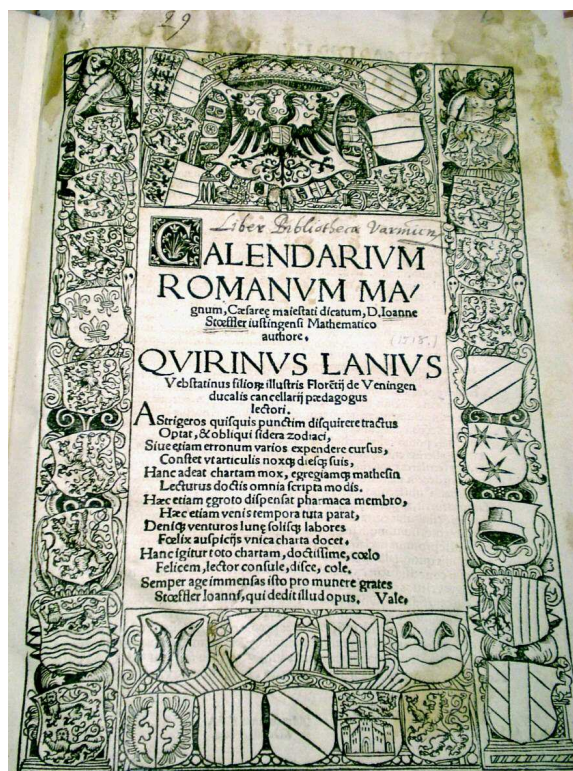 29
Liber Bibliothecæ Varmien,
CALENDARIVM
ROMANVM MA/
gnum, Cæsareę maiestati dicatum, D, Ioanne
Stœffler iustingensi Mathematico
authore.
(1518.)
QVIRINVS LANIVS
Vebstatinus filiorꝫ illustris Florētij de Veningen
ducalis cancellarij pædagogus
lectori.
AStrigeros quisquis punctim disquirere tractus
Optat, & obliqui sidera zodiaci,
Siue etiam erronum varios expendere cursus,
Constet vt articulis noxqꝫ diesqꝫ suis,
Hanc adeat chartam mox, egregiamqꝫ mathesin
Lecturus doctis omnia scripta modis.
Hæc etiam ęgroto dispensat pharmaca membro,
Hæc etiam venis tempora tuta parat,
Denisqꝫ venturos lunę solisqꝫ labores
Fœlix auspicijs vnica charta docet.
Hanc igitur toto chartam, doctissime, cœlo
Felicem, lector consule, disce, cole.
Semper age immensas isto pro munere grates
Stœffler Ioanni, qui dedit illud opus. Vale.